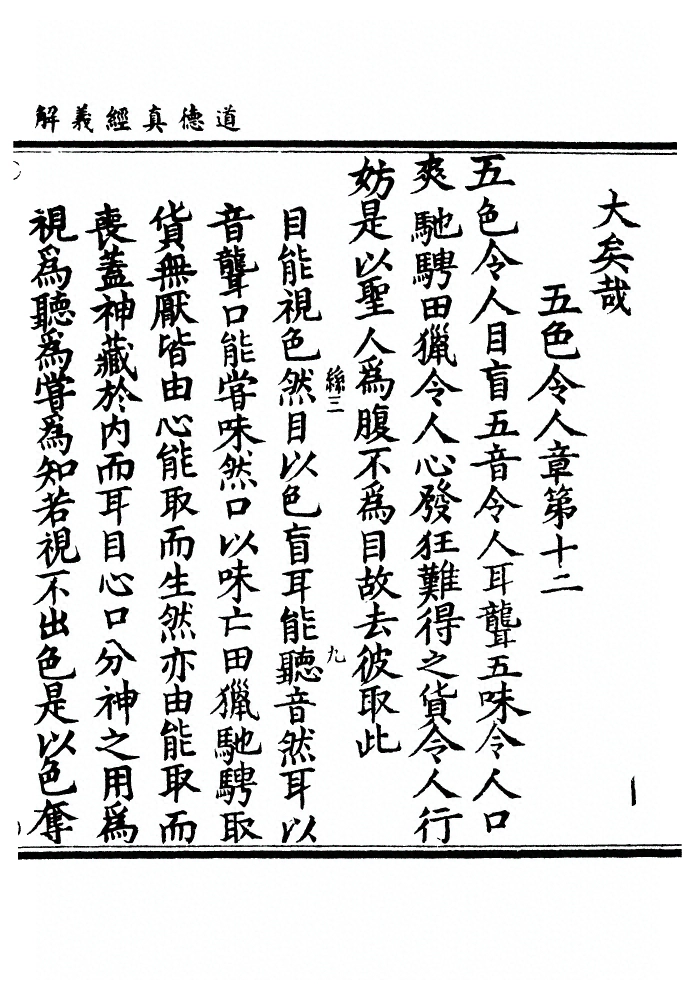 道德真經義解
大矣哉
五色令人章第十二
五色令人目盲五音令人耳聾五味令人口
爽馳騁田獵令人心發狂難得之貨令人行
妨是以聖人為腹不為目故去彼取此
絲三
九
目能視色然目以色盲耳能聽音然耳以
音聾口能嘗味然口以味亡田獵馳騁取
貨無厭皆由心能取而生然亦由能取而
喪蓋神藏於內而耳目心口分神之用為
視為聽為嘗為知若視不出色是以色奪